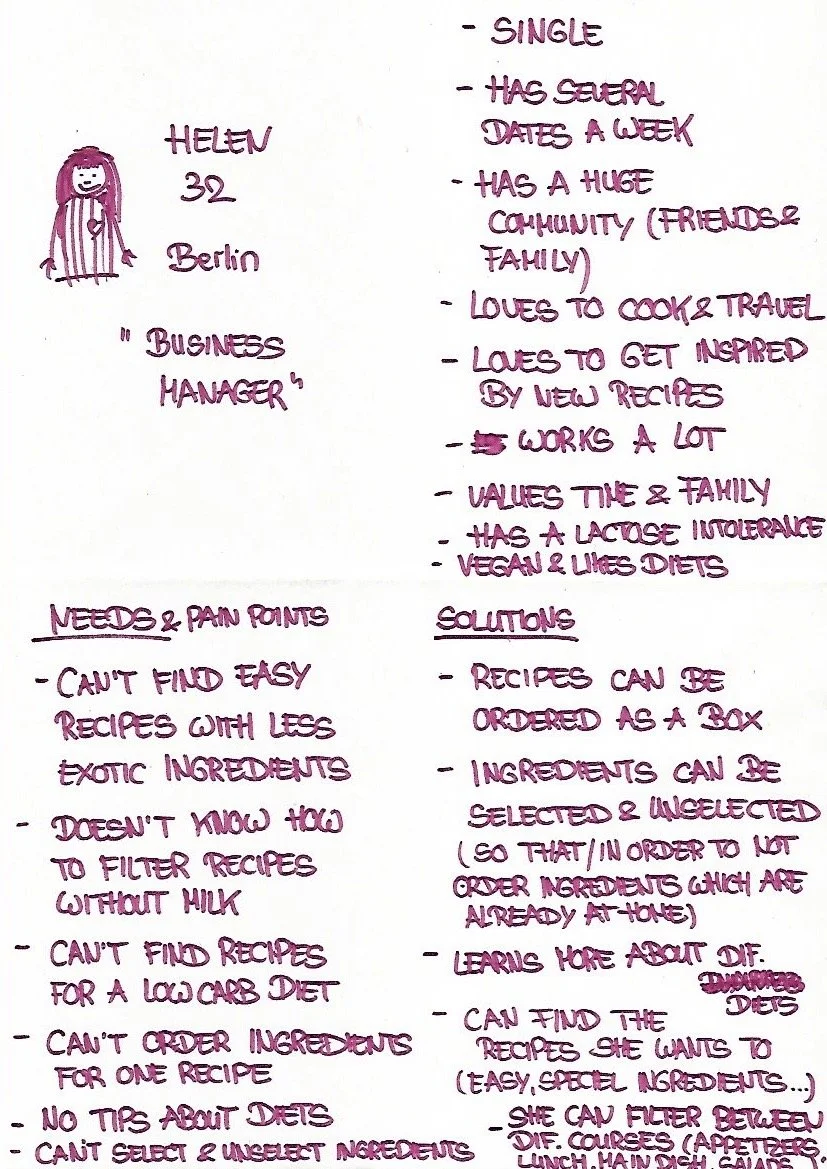 HELEN
32
Berlin
" BUSINESS
MANAGER"
- SINGLE
- HAS SEVERAL
DATES A WEEK
- HAS A HUGE
COMMUNITY (FRIENDS &
FAMILY)
- LOVES TO COOK & TRAVEL
- LOVES TO GET INSPIRED
BY NEW RECIPES
- WORKS A LOT
- VALUES TIME & FAMILY
- HAS A LACTOSE INTOLERANCE
- VEGAN & LIKES DIETS
NEEDS & PAIN POINTS
- CAN'T FIND EASY
RECIPES WITH LESS
EXOTIC INGREDIENTS
- DOESN'T KNOW HOW
TO FILTER RECIPES
WITHOUT MILK
- CAN'T FIND RECIPES
FOR A LOW CARB DIET
- CAN'T ORDER INGREDIENTS
FOR ONE RECIPE
- NO TIPS ABOUT DIETS
- CAN'T SELECT & UNSELECT INGREDIENTS
SOLUTIONS
- RECIPES CAN BE
ORDERED AS A BOX
- INGREDIENTS CAN BE
SELECTED & UNSELECTED
(SO THAT/IN ORDER TO NOT
ORDER INGREDIENTS WHICH ARE
ALREADY AT HOME)
- LEARNS MORE ABOUT DIF.
DIETS
- CAN FIND THE
RECIPES SHE WANTS TO
(EASY, SPECIEL INGREDIENTS...)
- SHE CAN FILTER BETWEEN
DIF. COURSES (APPETIZERS,
LUNCH, MAIN DISH,